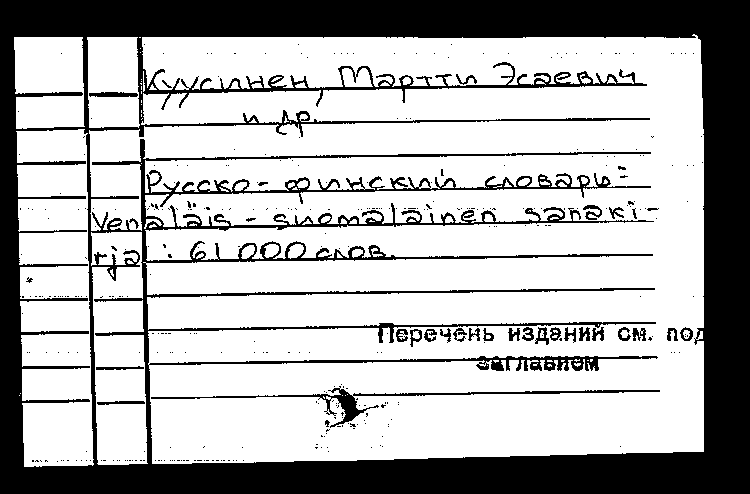 Куусинен, Мартти Эсаевич
и др.
Русско-финский словарь=
Venäläis-suomalainen sanaki-
rja : 61 000 слов.
Перечень изданий см. под
заглавием